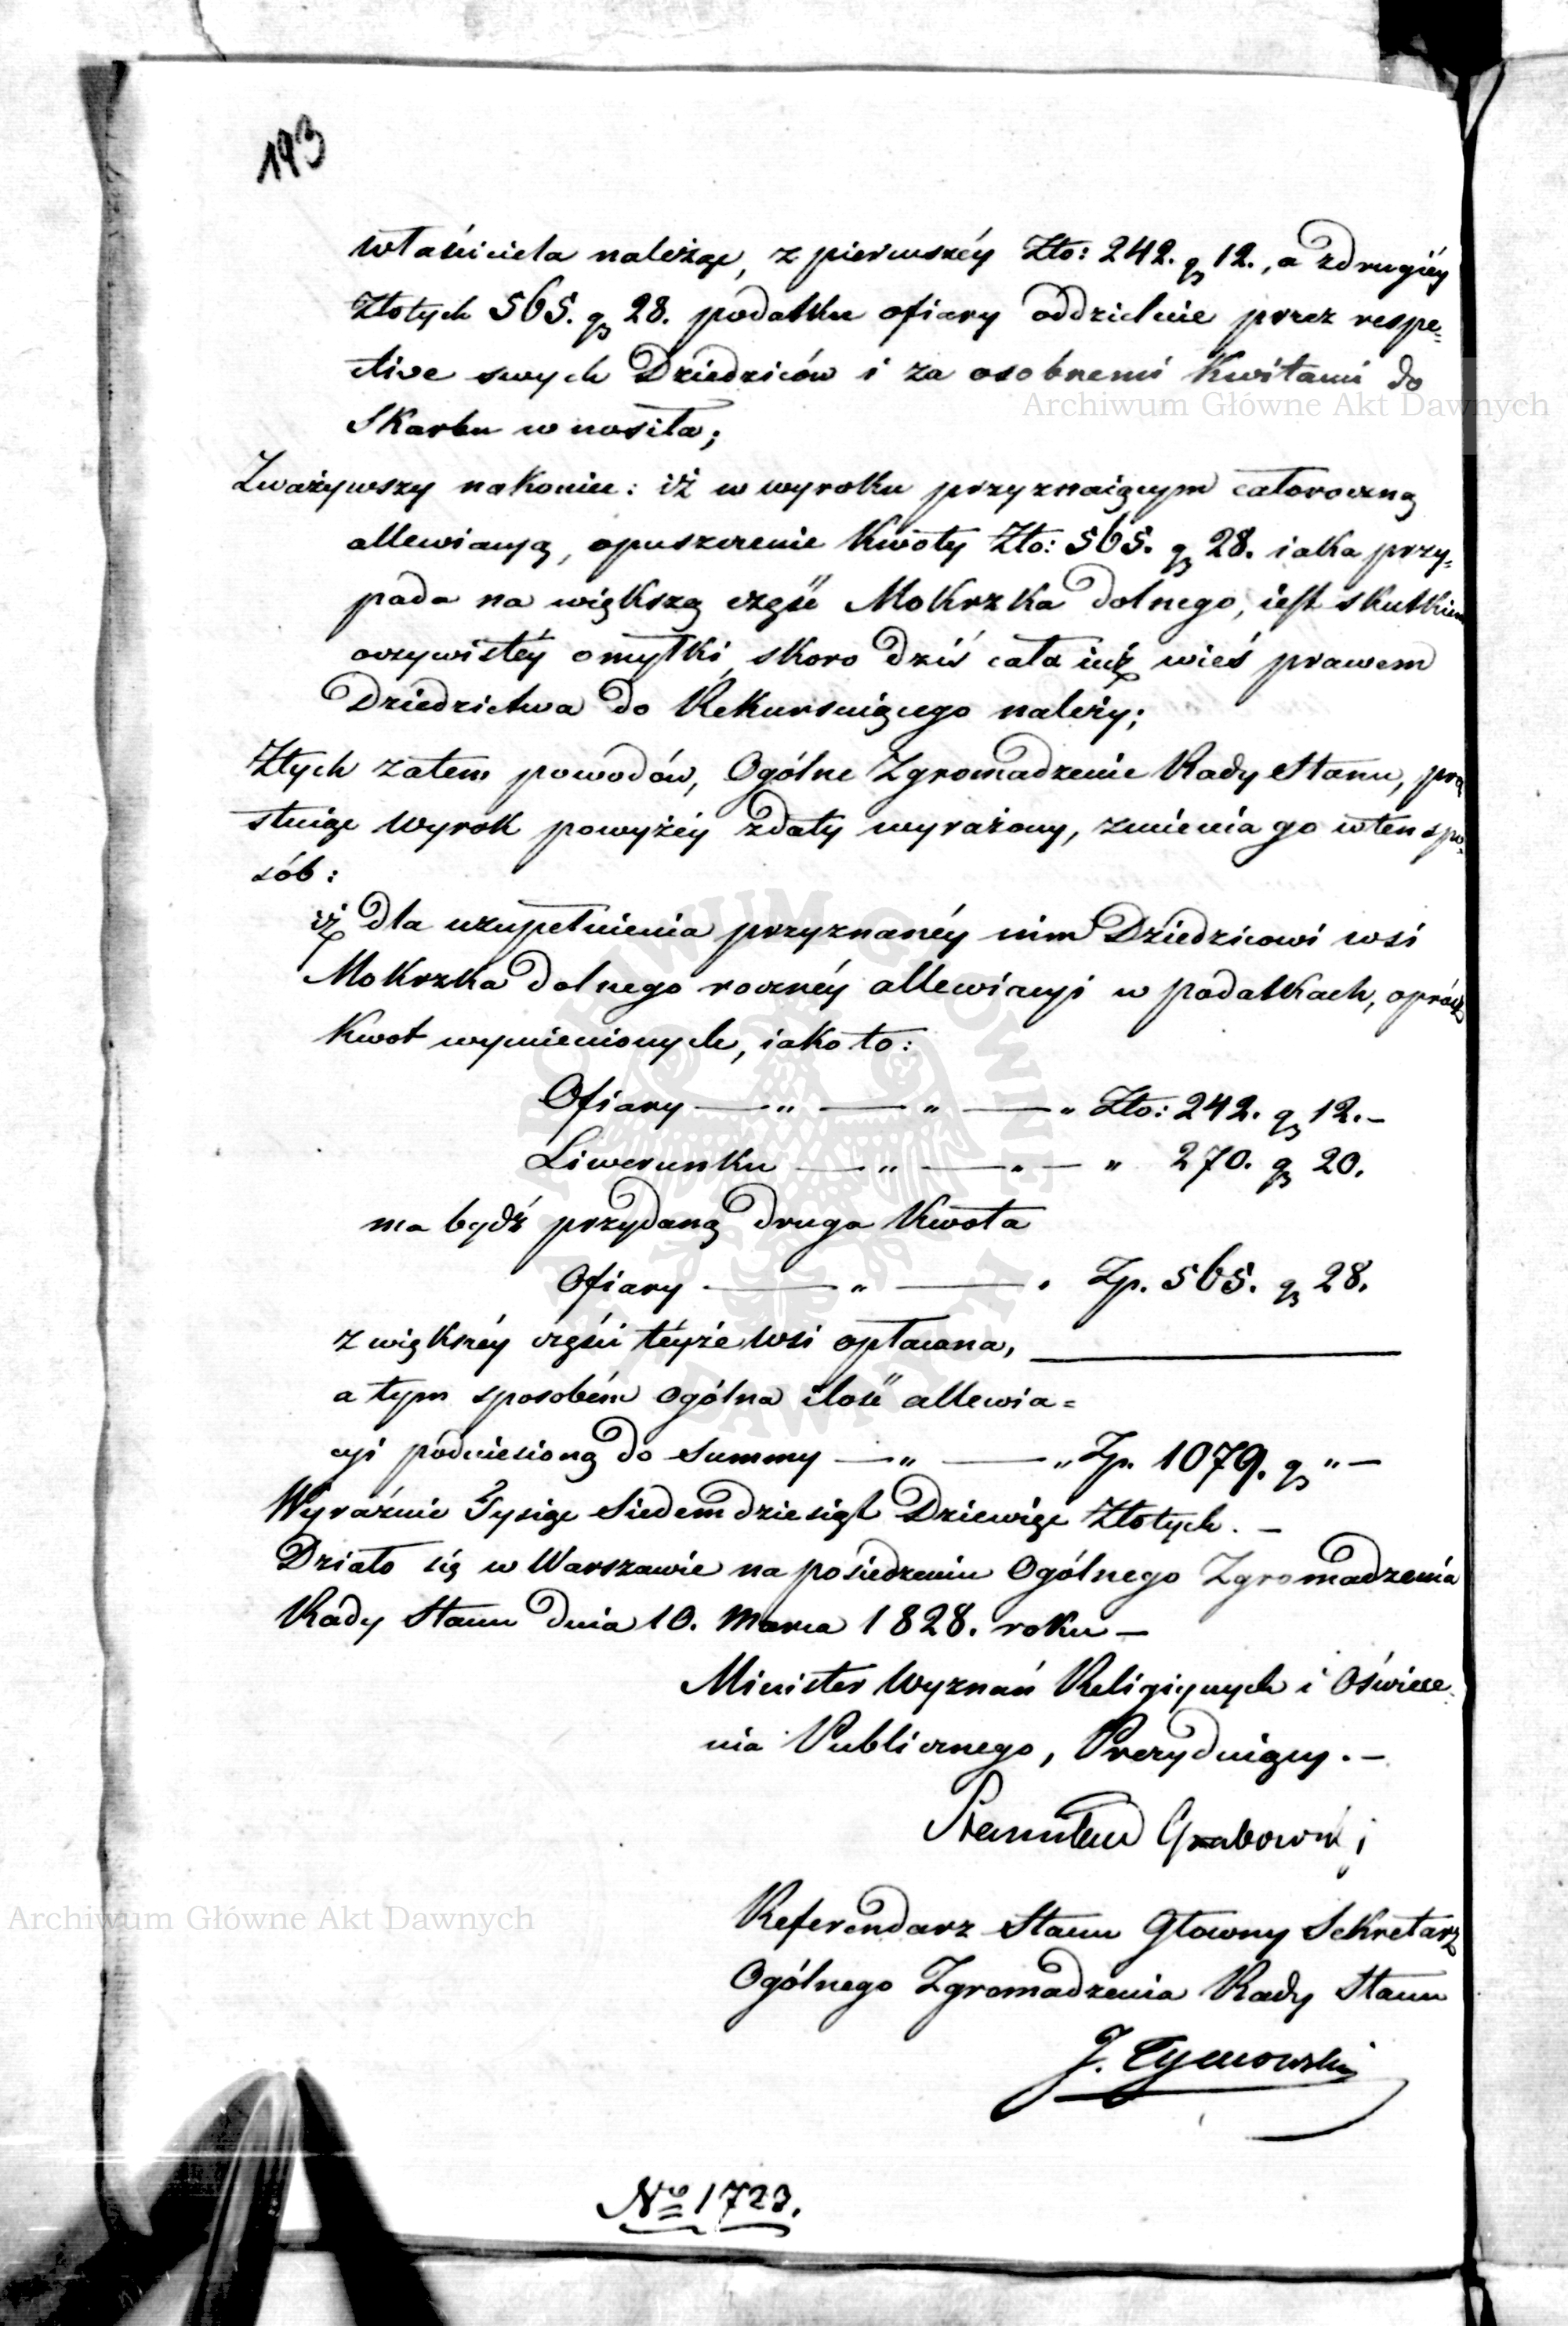 193
właściciela należąc, z pierwszéy Zło: 242. g 12., a zdrugiéy
Złotych 565. g 28. podatku ofiary oddzielnie przez respe=
ctive swych Dziedziców i za osobnemi Kwitami do
Skarbu wnosiła;
Zważywszy nakoniec: iż w wyroku przyznaiącym całoroczną
allewiacyą, opuszczenie Kwoty Zło: 565. g 28. iaka przy=
pada na większą część Mokrzka dolnego, iest skutkiem
oczywistéy omyłki, skoro dziś cała iuż wieś prawem
Dziedzictwa do Rekursuiącego należy;
Ztych zatem powodów, Ogólne Zgromadzenie Rady Stanu, pro
stuiąc Wyrok powyżéy zdaty wyrażony, zmienia go wten spo=
sób:
iż dla uzupełnienia przyznanéy nim Dziedzicowi wsi
Mokrzka dolnego rocznéy allewiacyi w podatkach, oprócz
Kwot wymienionych, iako to:
Ofiary — „ — „ — „ Zło: 242. g 12. –
Liwerunku — „ — „ — „ 270. g 20.
ma bydź przydaną druga Kwota
Ofiary — „ — „ Zp. 565. g 28.
z większéy części téyże wsi opłacana,
a tym sposobém ogólna ilość allewia=
cyi podniesioną do Summy — „ — „ Zp. 1079. g „ —
Wyraźnie Tysiąc Siedemdziesiąt Dziewięc Złotych. –
Działo się w Warszawie na posiedzeniu Ogólnego Zgromadzenia
Rady Stanu dnia 10. Marca 1828. roku —
Minister Wyznań Religiynych i Oświece=
nia Publicznego, Prezyduiący. –
Stanisław Grabowski
Referendarz Stanu Głowny Sekretarz
Ogólnego Zgromadzenia Rady Stanu
J. Tymowski
No 1723.
Archiwum Główne Akt Dawnych
Archiwum Główne Akt Dawnych
ARCHIWUM GŁÓWNE AKT DAWNYCH